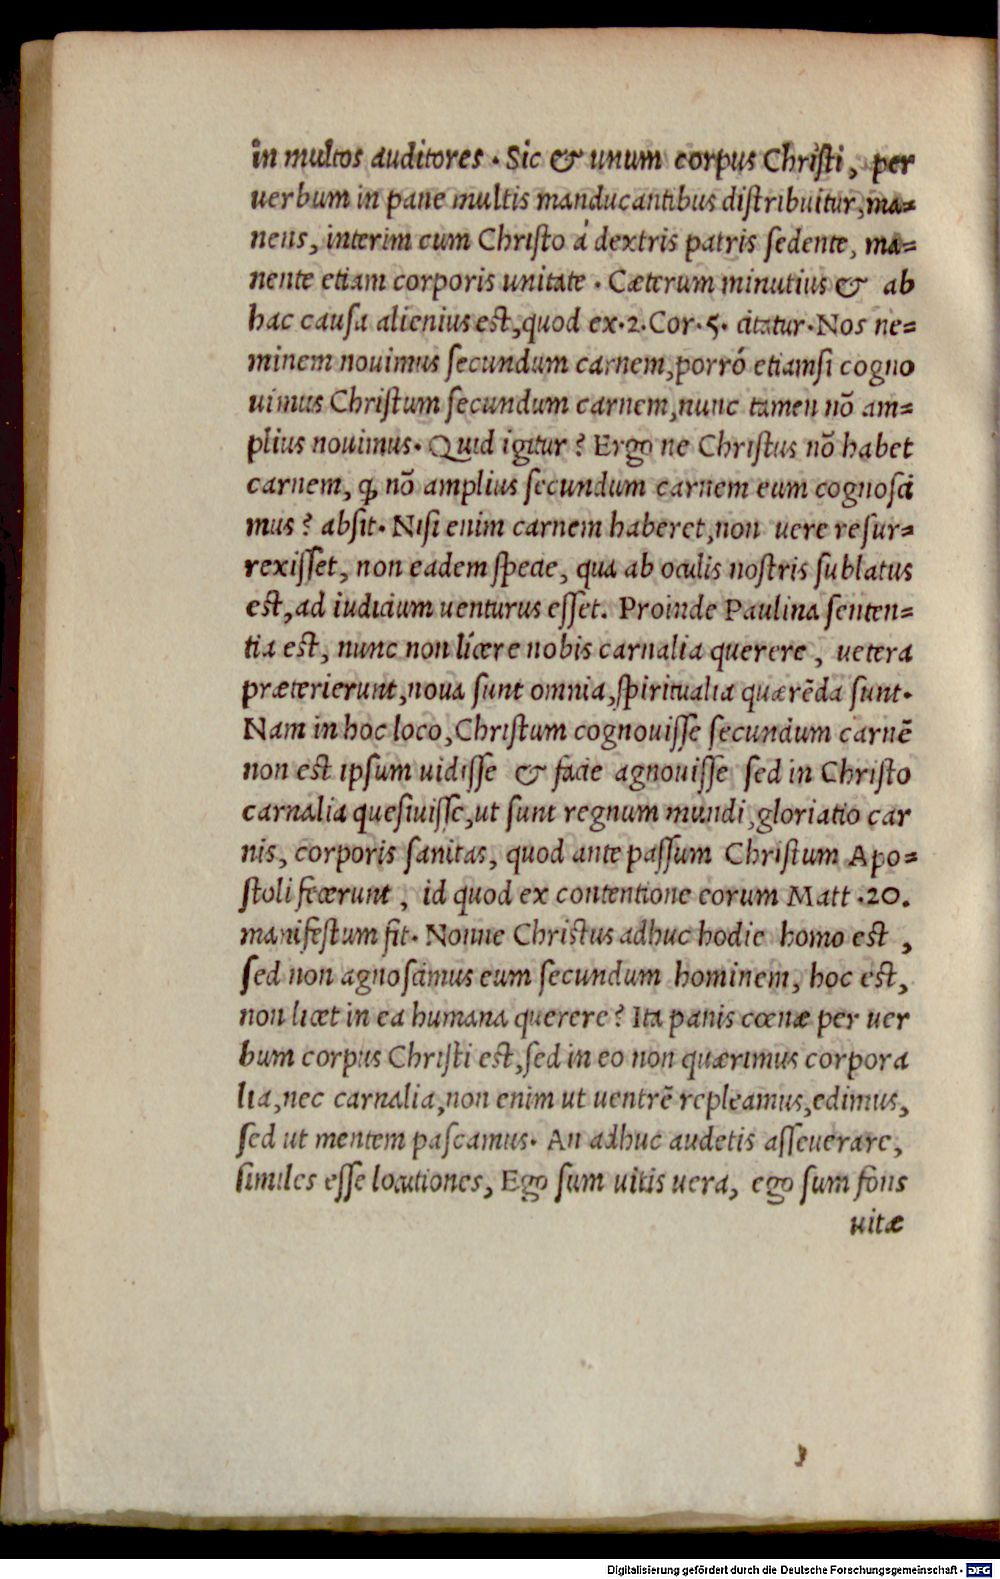 in multos auditores . Sic & unum corpus Christi, per
uerbum in pane multis manducantibus distribuitur, ma=
nens, interim cum Christo á dextris patris sedente, ma=
nente etiam corporis unitate . Cæterum minutius & ab
hac causa alienius est, quod ex . 2. Cor . 5. citatur . Nos ne=
minem nouimus secundum carnem, porró etiamsi cogno
uimus Christum secundum carnem, nunc tamen nõ am=
plius nouimus . Quid igitur ? Ergo ne Christus nõ habet
carnem, ꝙ nõ amplius secundum carnem eum cognosci
mus ? absit . Nisi enim carnem haberet, non uere resur=
rexisset, non eadem specie, qua ab oculis nostris sublatus
est, ad iudicium uenturus esset. Proinde Paulina senten=
tia est, nunc non lícere nobis carnalia querere , uetera
præterierunt, noua sunt omnia, spiritualia quærẽda sunt .
Nam in hoc loco, Christum cognouisse secundum carnẽ
non est ipsum uidisse & facie agnouisse sed in Christo
carnalia quesiuisse, ut sunt regnum mundi, gloriatio car
nis, corporis sanitas, quod ante passum Christum Apo=
stoli fecerunt , id quod ex contentione eorum Matt . 20.
manifestum fit . Nonne Christus adhuc hodie homo est ,
sed non agnoscimus eum secundum hominem, hoc est,
non licet in ea humana querere ? Ita panis cœnæ per uer
bum corpus Christi est, sed in eo non quærimus corpora
lia, nec carnalia, non enim ut uentrẽ repleamus, edimus,
sed ut mentem pascamus . An adhuc audetis asseuerare,
similes esse locutiones, Ego sum uitis uera, ego sum fons
uitæ
Digitalisierung gefördert durch die Deutsche Forschungsgemeinschaft - DFG